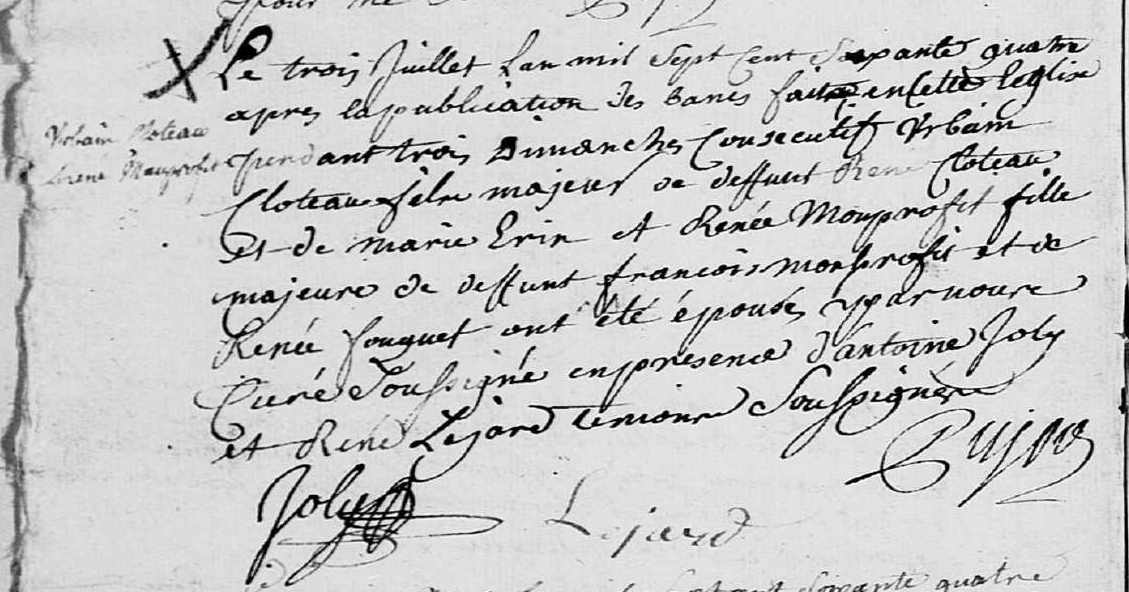 pour me
Le trois Juillet Lan mil Sept Cent Soixante quatre
apres la publication des bancs faite en Cette Eglise
Urbain Cloteau
Renee Monprofit
pendant trois Dimanches Consecutifs Urbain
Cloteau fils majeur de deffunt René Cloteau
et de marie Erin et Renée Monprofit fille
majeure de deffunt francois monprofit et de
Renée fouquet ont été épousés par nous
Curé Soussigné en presence d'antoine Joly
et René Lejard temoins Soussignés
Joly
Lejard
Soixante quatre